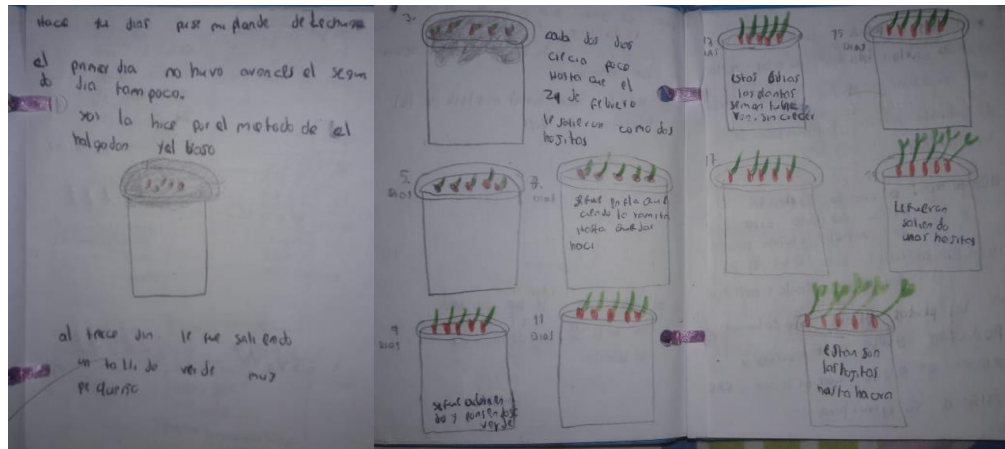 Hace dias puse mi de lechuga
el primer dia no huvo avances el segun
do dia tampoco.
yo la hice por el metodo de el
halgodon y el baso
al trece dia le fue saliendo
un tallido verde muy
pequeño
3.
cada dos dias
crecia poco
Hasta que el
24 de febrero
le salieron como dos
hojitas
5.
DIAS
7.
DIAS
la ramita
Hasta quedar
haci
9
DIAS
y poniendose
verde
11
DIAS
13
DIAS
estos dias
las plantas
se mantubie
ron sin crecer
15
DIAS
17.
Le fueran
saliendo
unas hojitas
estan son
las hojitas
hasta haora